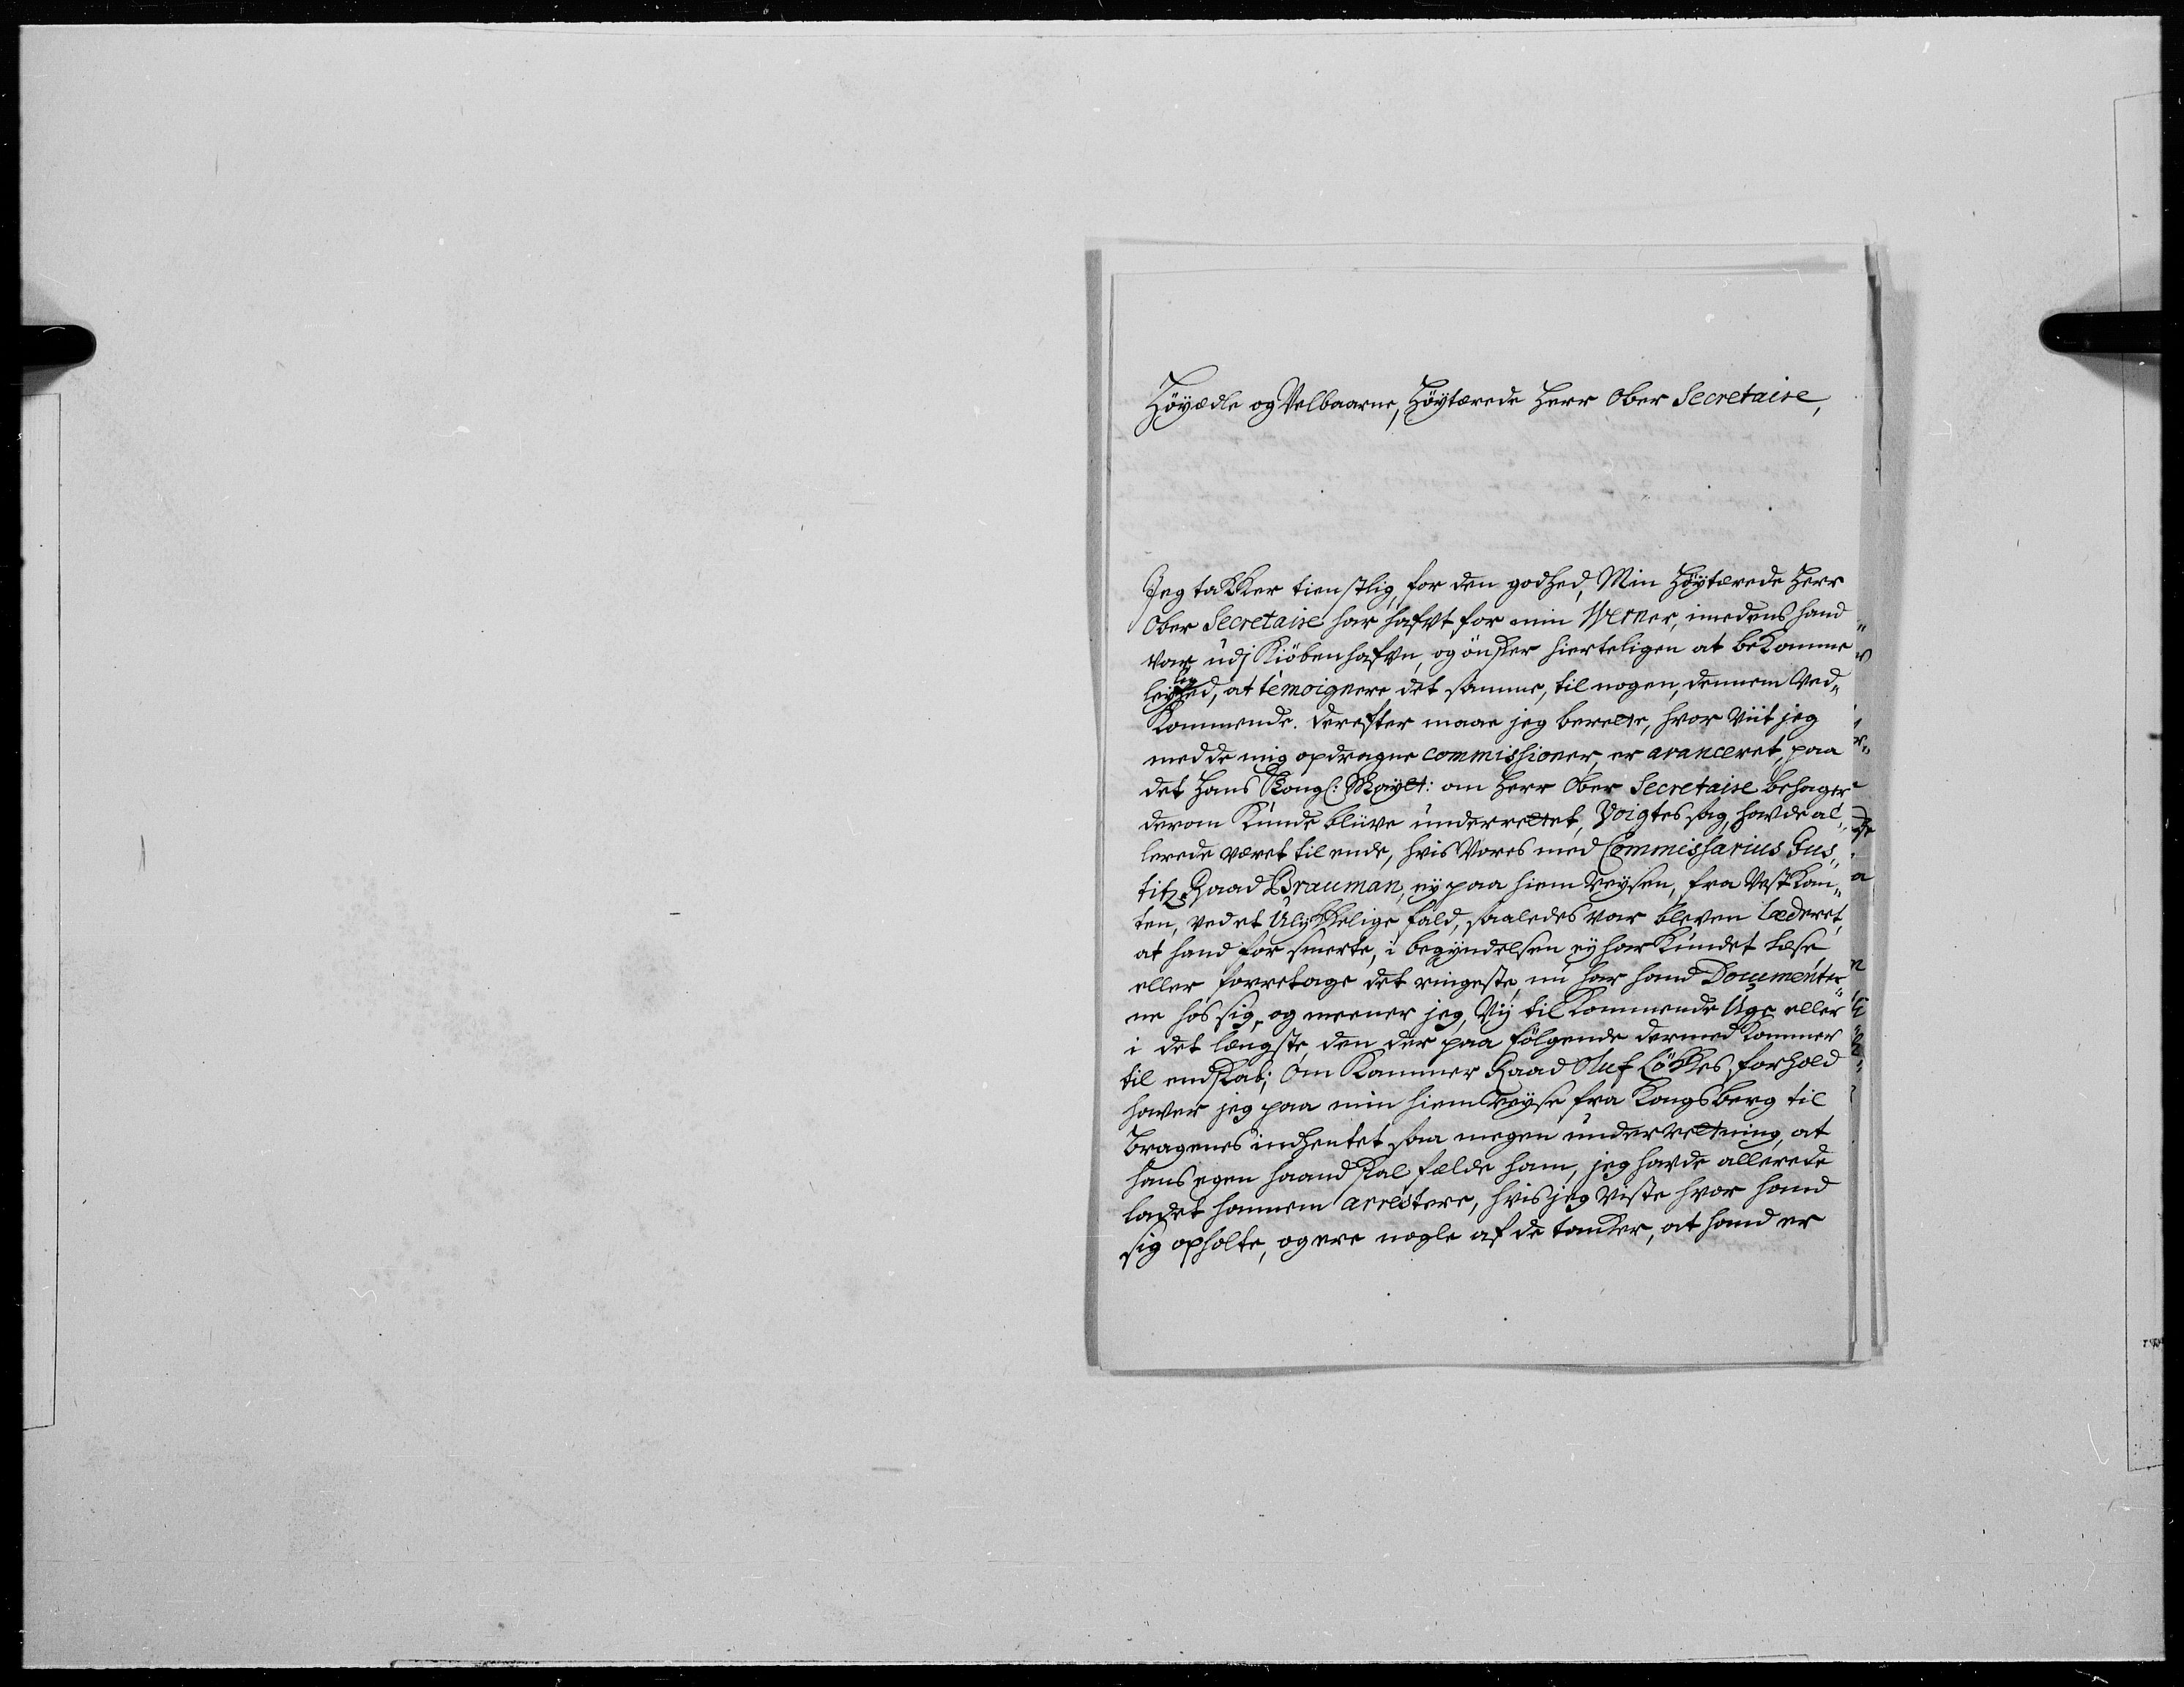 Höyædle og Velbaarne, Höytærede Herr Ober Secretaire,
Jeg takker tienstlig, for den godhed, Min Höytærede Herr
Ober Secretaire har hafvt for min Werner, imedens hand
var udj Kiöbenhafvn, og önsker hierteligen at bekomme
leylighed, at témoignere det samme, til nogen, dennem Ved„
Kommende. Derefter maae jeg berette, hvor Viit jeg
med de mig opdragne commissioner, er avanceret, paa
det Hans Kongl: Mayet: om Herr Ober Secretaire behager
derom Kunde blive underrettet, Voigtes sag, havde al„
lerede været til ende, hvis Vores med Commissarius Jus„
titz Raad Brauman, ey paa hiem Reysen, fra Vestkan„
ten, ved et Ulykkelige fald, saaledes var bleven læderet,
at hand for smerte, i begyndelsen ey har kundet læse
eller foretage det ringeste, nu har hand Documenter„
ne hos sig, og meener jeg, Vij tilkommende Uge eller
i det længste, den der paa fölgende dermed kommer
til endskab; Om Kammer Raad Oluf Lökkes forhold
haver jeg paa min hiemreyse fra Kongsberg til
Bragenes indhentet saa megen underretning, at
hans egen haand skal fælde ham, jeg havde allerede
ladet hannem arrestere, hvis jeg viste hvor hand
sig opholte, og ere nogle af de tanker, at hand er